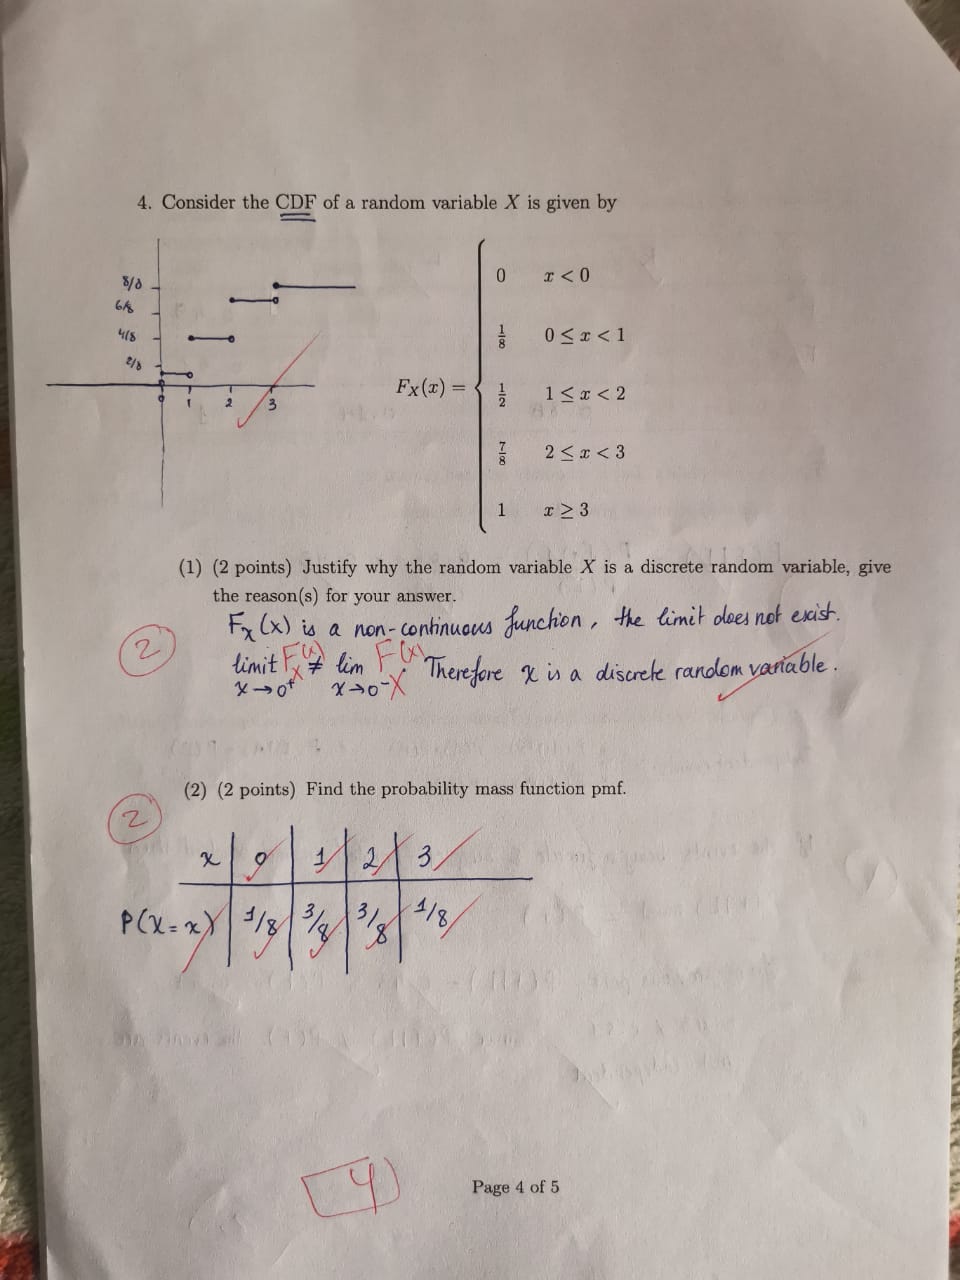 4. Consider the CDF of a random variable X is given by
8/8
6/8
4/8
2/8
0 1 2 3
F_X(x) =
0 x < 0
1/8 0 ≤ x < 1
1/2 1 ≤ x < 2
7/8 2 ≤ x < 3
1 x ≥ 3
(1) (2 points) Justify why the random variable X is a discrete random variable, give
the reason(s) for your answer.
2
F_X(x) is a non-continuous function, the limit does not exist.
limit F_X(x) ≠ lim F_X(x). Therefore x is a discrete random variable.
x→0⁺ x→0⁻
(2) (2 points) Find the probability mass function pmf.
2
x 0 1 2 3
P(X=x) 1/8 3/8 3/8 1/8
4
Page 4 of 5